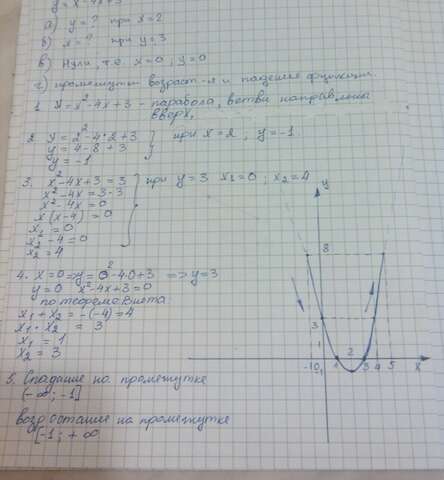 y = x²-4x+3
а) y = ? при x = 2
б) x = ? при y = 3
в) Нули, т.е. x = 0; y = 0
г) промежутки возраст-я и падения функции.
1. y = x²-4x+3 - парабола, ветви направлены
вверх,
2. y = 2²-4·2+3
y = 4-8+3
y = -1
при x = 2, y = -1.
3. x²-4x+3 = 3
x²-4x = 3-3
x²-4x = 0
x(x-4) = 0
x₁ = 0
x₂-4 = 0
x₂ = 4
при y = 3 x₁ = 0; x₂ = 4
4. x = 0 => y = 0²-4·0+3 => y = 3
y = 0 x²-4x+3 = 0
по теореме Виета:
x₁ + x₂ = -(-4) = 4
x₁ · x₂ = 3
x₁ = 1
x₂ = 3
5. Спадание на промежутке
(-∞; -1]
возрастание на промежутке
[-1; +∞
y
8
3
1
-1 0 1 2 3 4 5 x